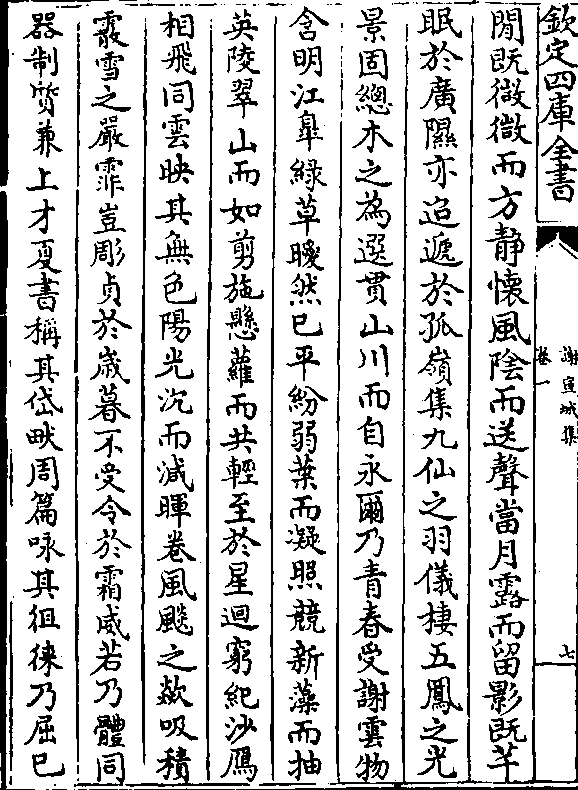 欽定四庫全書
謝宣城集
卷一
七
閒既微微而方靜懷風陰而送聲當月露而留影既芊
眠於廣隰亦迢遞於孤嶺集九仙之羽儀棲五鳳之光
景固總木之為選貫山川而自永爾乃青春受謝雲物
含明江臯綠草曖然已平紛弱葉而凝照競新藻而抽
英陵翠山而如剪施懸蘿而共輕至於星迴窮紀沙鴈
相飛同雲映其無色陽光沉而減暉卷風飈之欻吸積
霰雪之嚴霏豈彫貞於歲暮不受令於霜威若乃體同
器制質兼上才夏書稱其岱畎周篇咏其徂徠乃屈已